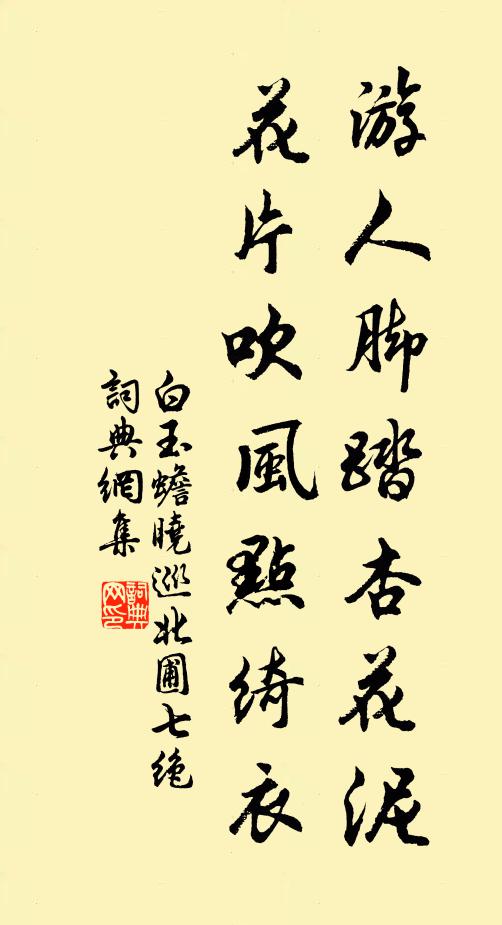 游人脚踏杏花泥
花片吹風點綺衣
白玉蟾曉巡北圃七絶
詞典網集
詞典
网印